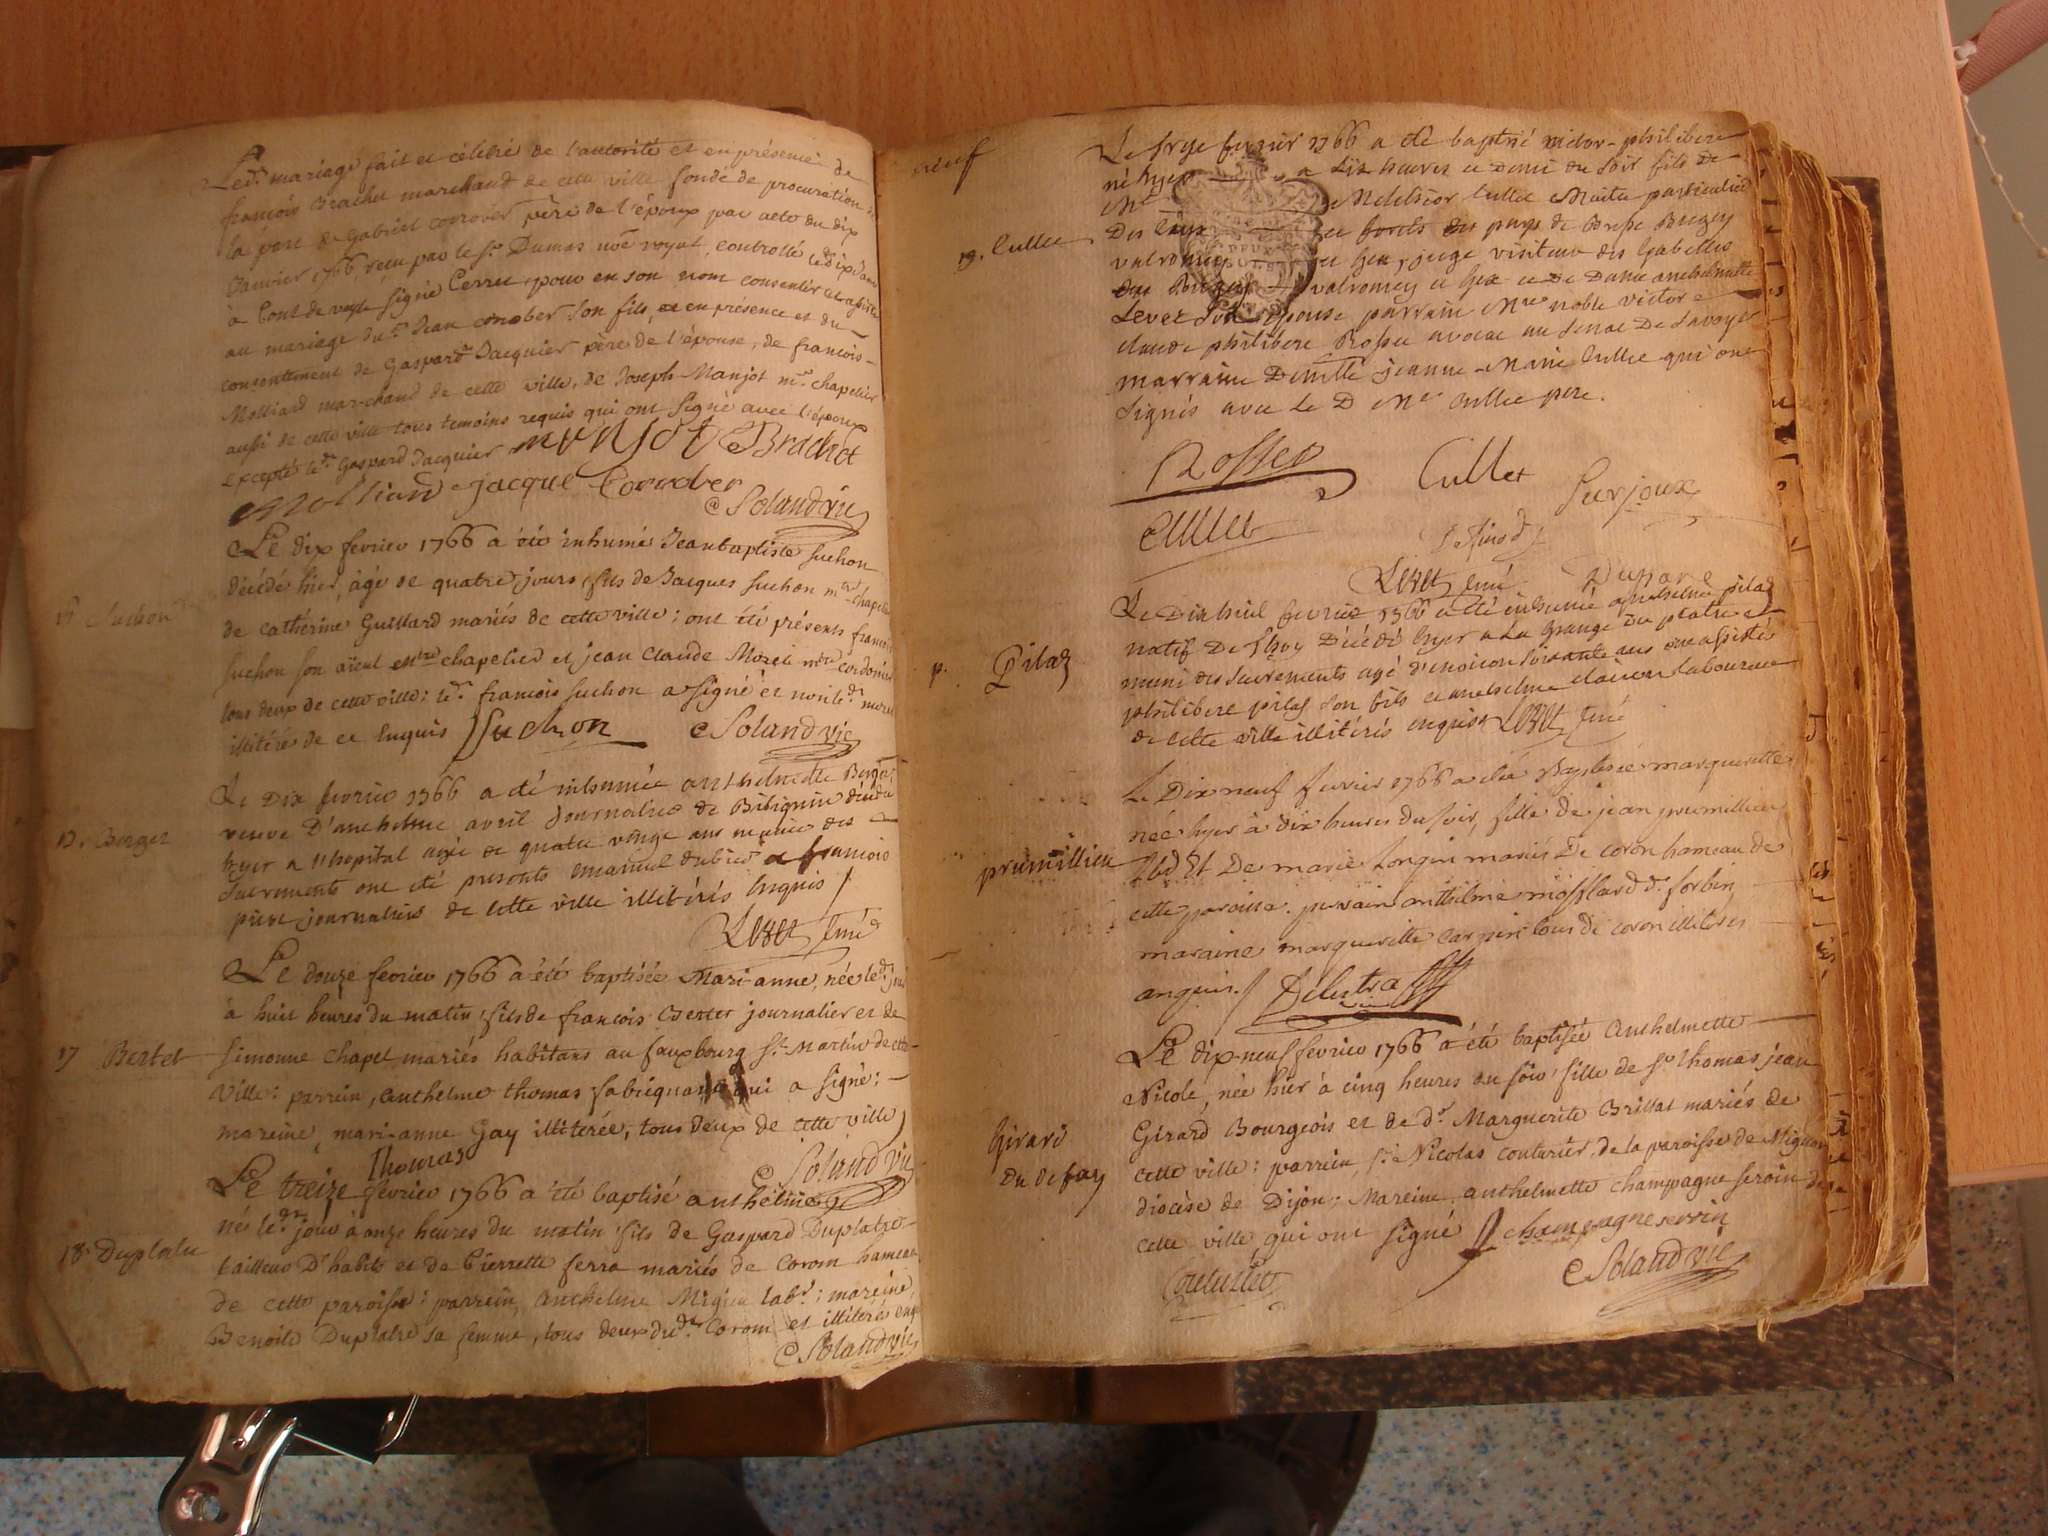 Led.t mariage fait et célébré de l'autorité et en présence de
françois Brachet marchand de cette ville fondé de procuration
la part de Gabriel corrober père de l'époux par acte du dix
Janvier 1766, reçu par le S.r Dumas no.re royal, controllé led.
à Pont de signé Perret, pour en son nom consentir et
au mariage du S.r Jean son fils, et en présence et du
consentement de Gaspard Jacquier père de l'épouse, de françois
Molliard marchand de cette ville, de Joseph Manjot m.e chapelier
aussi de cette ville tous temoins requis qui ont signé avec l'époux
excepté led. Gaspard Jacquier Manjot Brachet
Molliard jacque Corrober
Soland vic
17 Suchon
Le dix fevrier 1766 a été inhumé Jean baptiste Suchon
décédé hier, âgé de quatre jours, fils de Jacques Suchon m.tre chapelier
de Catherine Guillard mariés de cette ville; ont été présents françois
Suchon son aieul m.tre chapelier et jean Claude Morel m.tre cordonier
tous deux de cette ville; led. françois Suchon a signé et non led. morel
illitéré de ce Enquis Suchon Soland vic
Berger
Le Dix fevrier 1766 a été inhumée anthelmette Berger
veuve D'anthelme avril Journaliere de décédée
hyer a l'hopital agée de quatre vingt ans munie des
Sacrements ont été presents françois
journaliers de cette ville illitérés Enquis
17 Bertet
Le douze fevrier 1766 a été baptisée Mari-anne, née led. jour
à huit heures du matin fils de françois Bertet journalier et de
Simonne Chapel mariés habitans au fauxbourg S.t Martin de cette
Ville: parrein, anthelme thomas fabriquant qui a signé;
mareine, mari-anne Gay illiterée, tous deux de cette ville
Thomas Soland vic
18. Duplatre
Le treize fevrier 1766 a été baptisé anthelme
né led. jour à onze heures du matin fils de Gaspard Duplatre
tailleur D'habits et de Pierrette ferra mariés de Corom hameau
de cette paroisse: parrein, anthelme Migieu lab.r; mareine,
Benoite Duplatre sa femme, tous deux dud. Corom et illiterés enq.
Soland vic
19. Cullet
Le seize fevrier 1766 a été baptisé victor-philibert
né hyer a six heures et demi du soir fils de
M.e Melchior Cullet Maitre particulier
Des eaux et forets des pays de Bresse Beugey
valromey et Gex, juge visiteur des Gabelles
du Beugey valromey et Gex et de Dame anthelmette
Levet son epouse parrain M.re noble victor
claude philibert Rosset avocat au Senat De Savoye
marraine Demlle jeanne-Marie Cullet qui ont
Signés avec le D M.e Cullet pere.
Rosset Cullet Surjoux
Cullet
p. Pilaz
Le Dixhuit fevrier 1766 a été inhumé anthelme pilaz
natif De Décédé hyer a La Grange Du platre
muni des Sacrements agé d'environ soixante ans ont assistés
philibert pilaz son fils et anthelme laboureur
de cette ville illitérés enquis
prumillieu
Le Dix neuf fevrier 1766 a été Baptisée marguerite
née hyer à dix heures du soir, fille de jean prumillieu
et De marie Longin mariés De coron hameau de
cette paroisse. parrain anthelme
maraine marguerite tous de coron illiterés
enquis Delestra
Girard
Du defay
Le dix-neuf fevrier 1766 a été baptisée Anthelmette
Nicole, née hier à cinq heures du soir fille de S.r thomas jean
Girard Bourgeois et de d.e Marguerite Brillat mariés de
cette ville: parrein, S.r Nicolas couturier de la paroisse de
diocèse de Dijon; Mareine anthelmette champagne seroin de
cette ville, qui ont signé champagne serrin
Couturier Soland vic